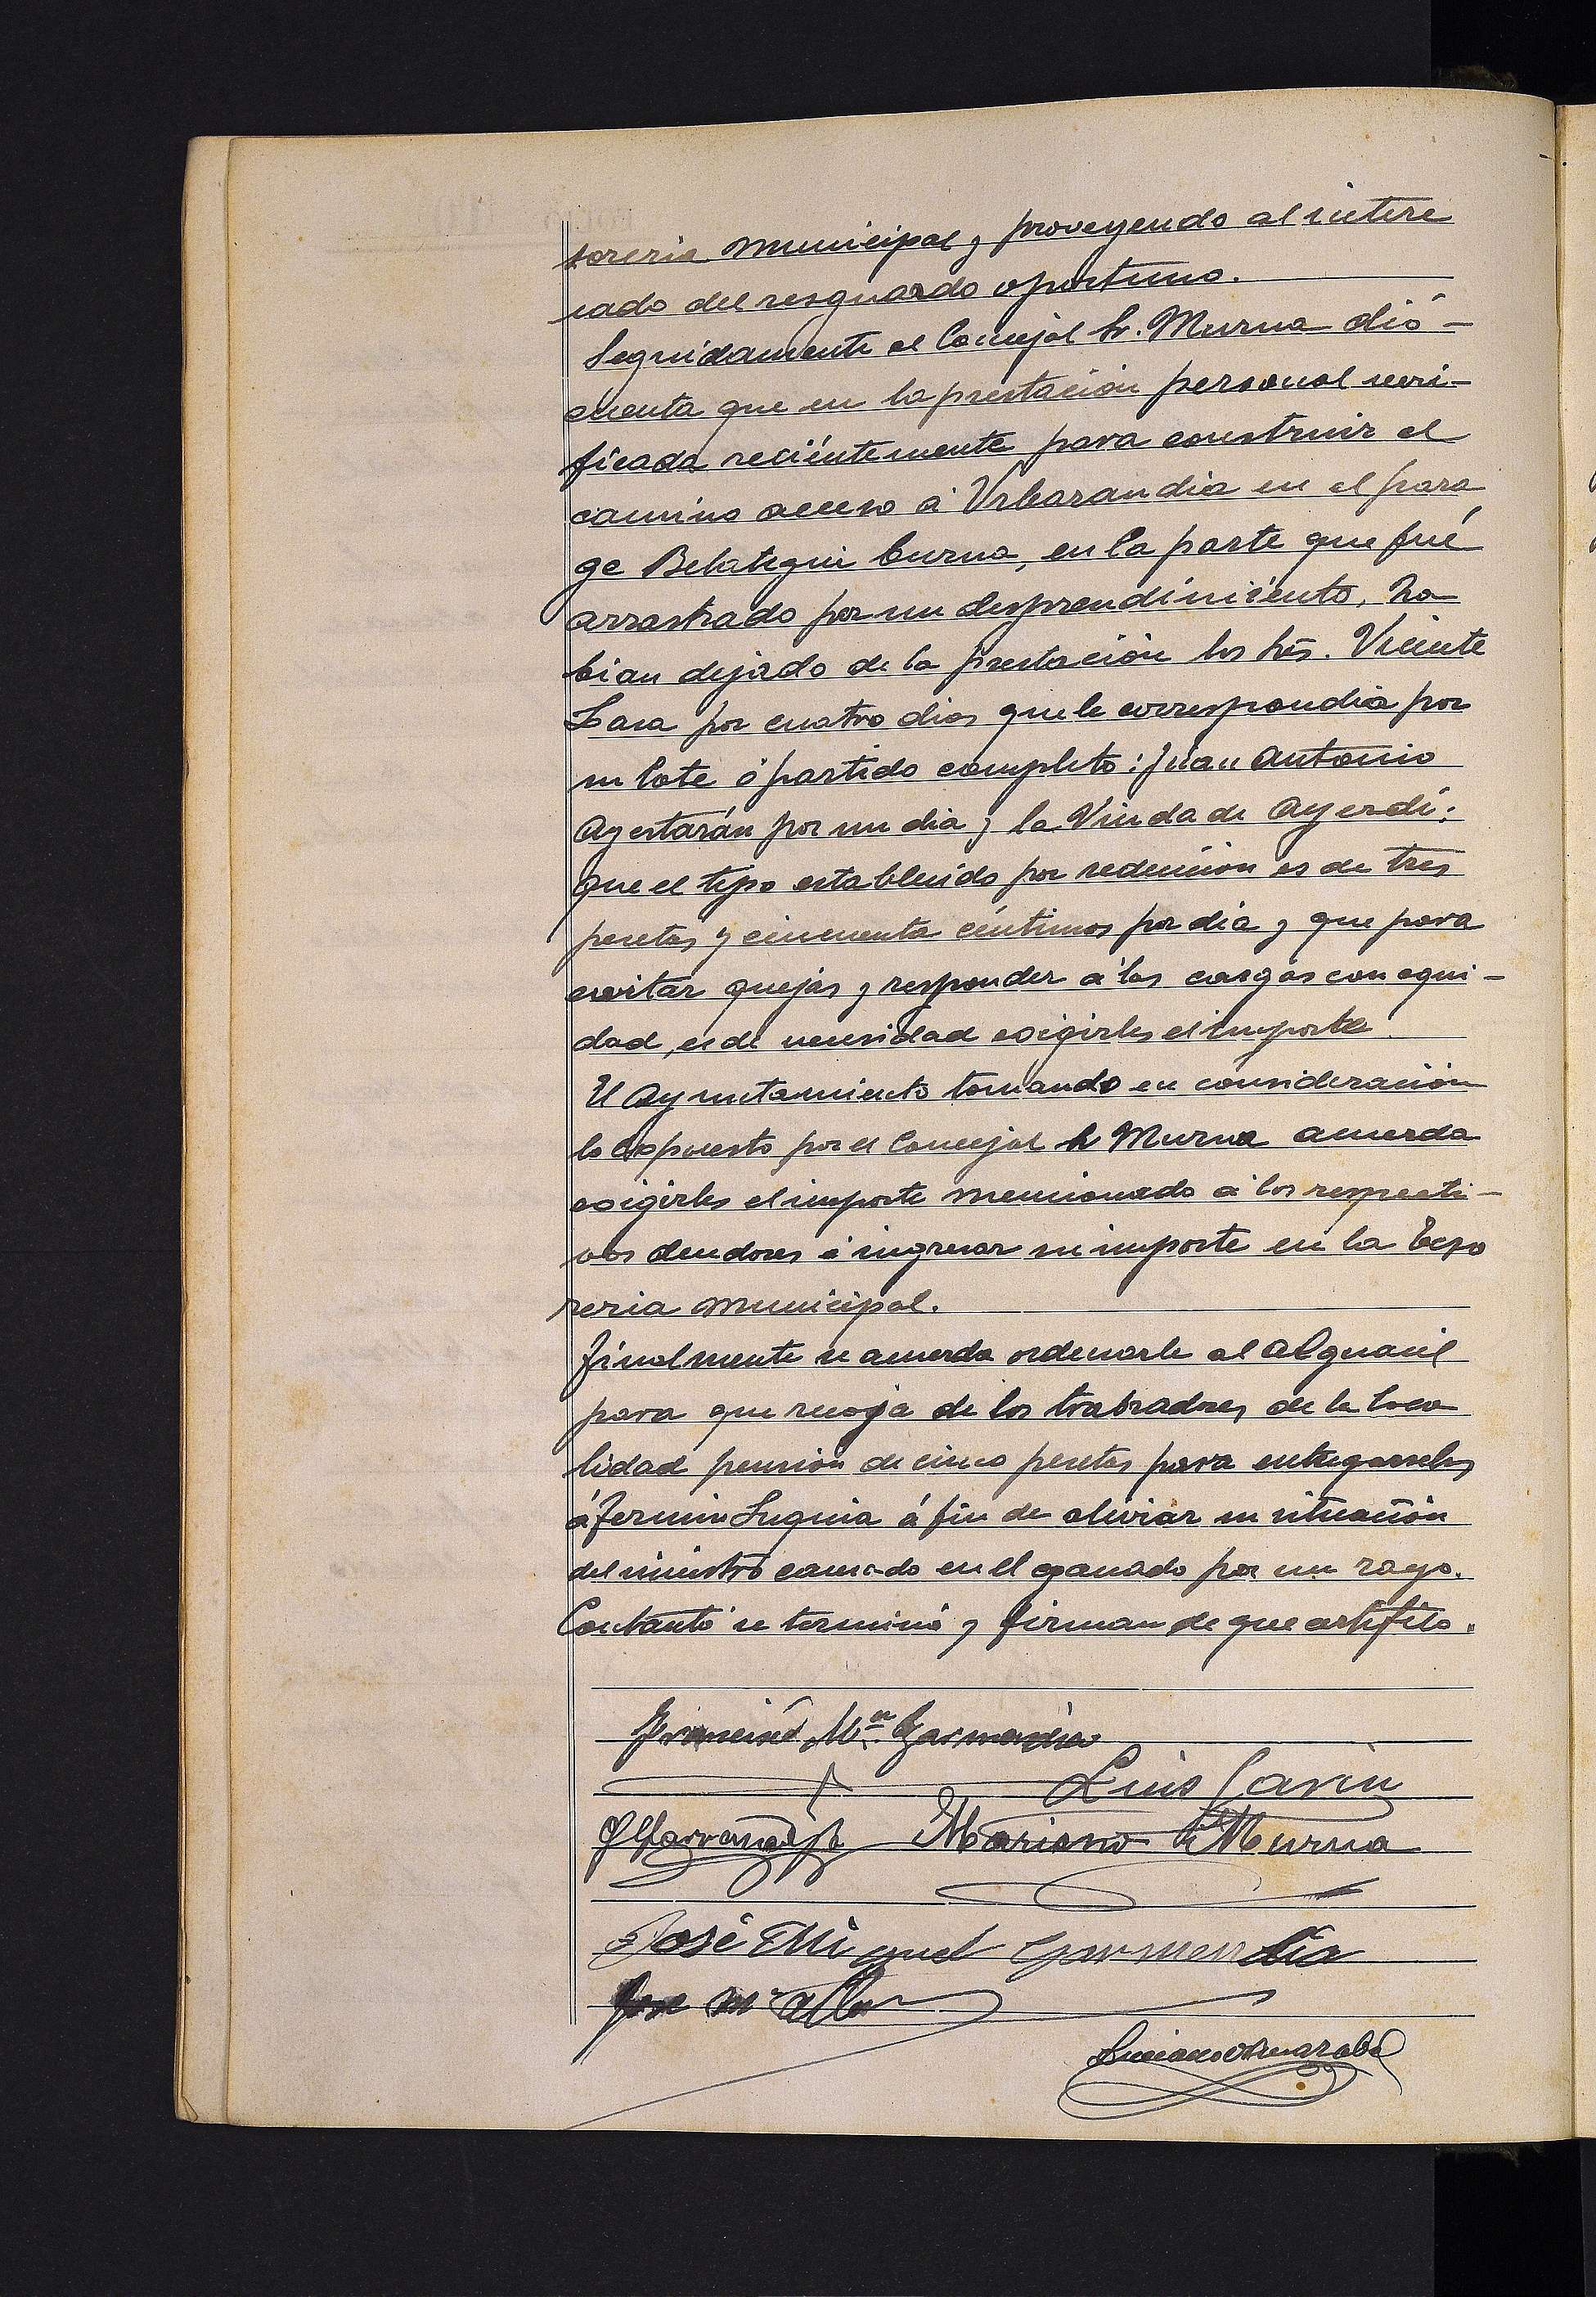 soreria municipal y proveyendo al intere
sado del resguardo oportuno.
Seguidamente el Concejal Sr. Murua dió -
cuenta que en la prestación personal veri-
ficada reciéntemente para construir el
camino acceso á Urbarandia en el para
ge Belategui burua, en la parte que fué
arrastrado por un desprendimiento, ha
bian dejado de la prestación los Srs. Vicente
Lasa por cuatro dias que le correspondia por
su lote ó partido completo: Juan Antonio
Ayestarán por un dia y la Viuda de Ayerdi:
que el tipo establecido por redención es de tres
pesetas y cincuenta céntimos por dia y que para
evitar quejas y responder á las cargas con equi-
dad, es de necesidad exigirles el importe.
El Ayuntamiento tomando en consideración
lo expuesto por el Concejal Sr Murua acuerda
exigirles el importe mencionado á los respecti-
vos deudores é ingresar su importe en la Teso
reria municipal.
Finalmente se acuerda ordenarle al Alguacil
para que recoja de los labradores de la loca
lidad pensión de cinco pesetas para entregarselas
á Fermin Luquia á fin de aliviar su situación
del sinistro causado en el ganado por un rayo.
Contanto se terminó y firman de que certifico.
Francisco M.ª Garmendia
Luis Gavin
Mariano Murua
José Miguel Garmendia
Jose M.ª
Luciano